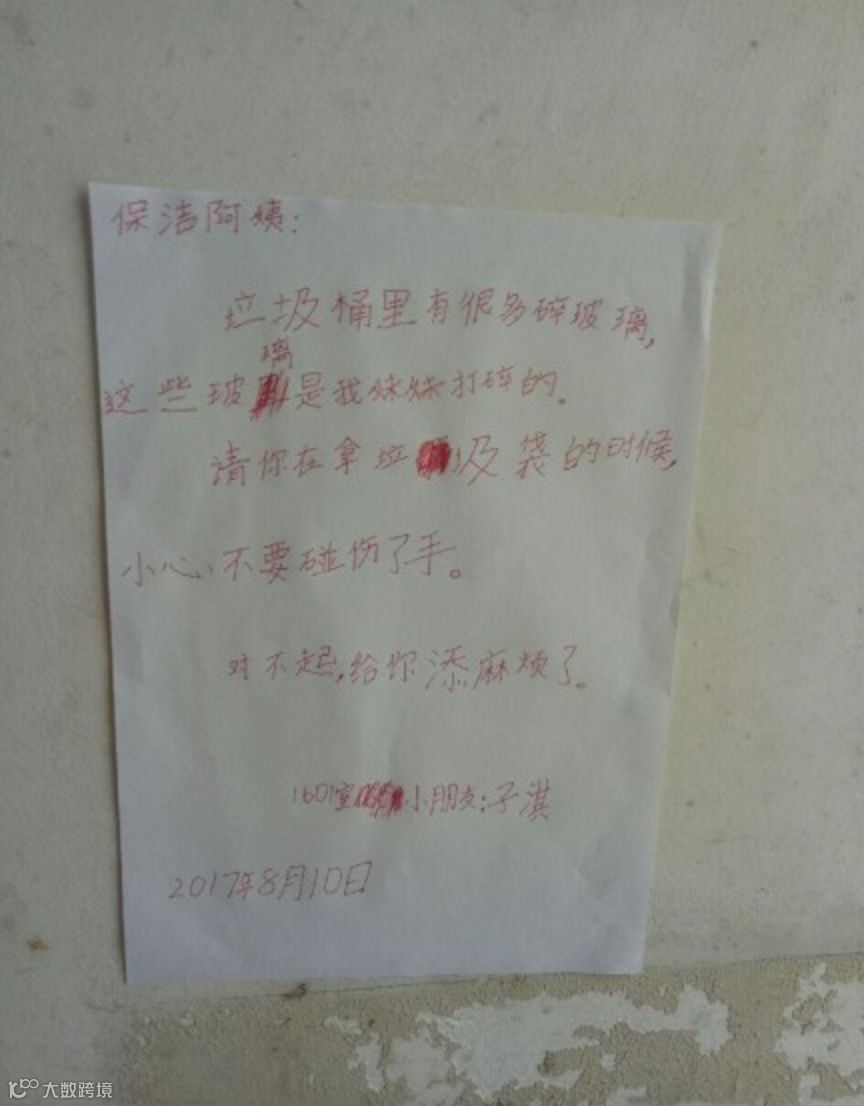 保洁阿姨:
垃圾桶里有很多碎玻璃,
这些玻璃是我妹妹打碎的。
请你在拿垃圾袋的时候,
小心,不要碰伤了手。
对不起,给你添麻烦了。
1601室小朋友:子淇
2017年8月10日
大数跨境